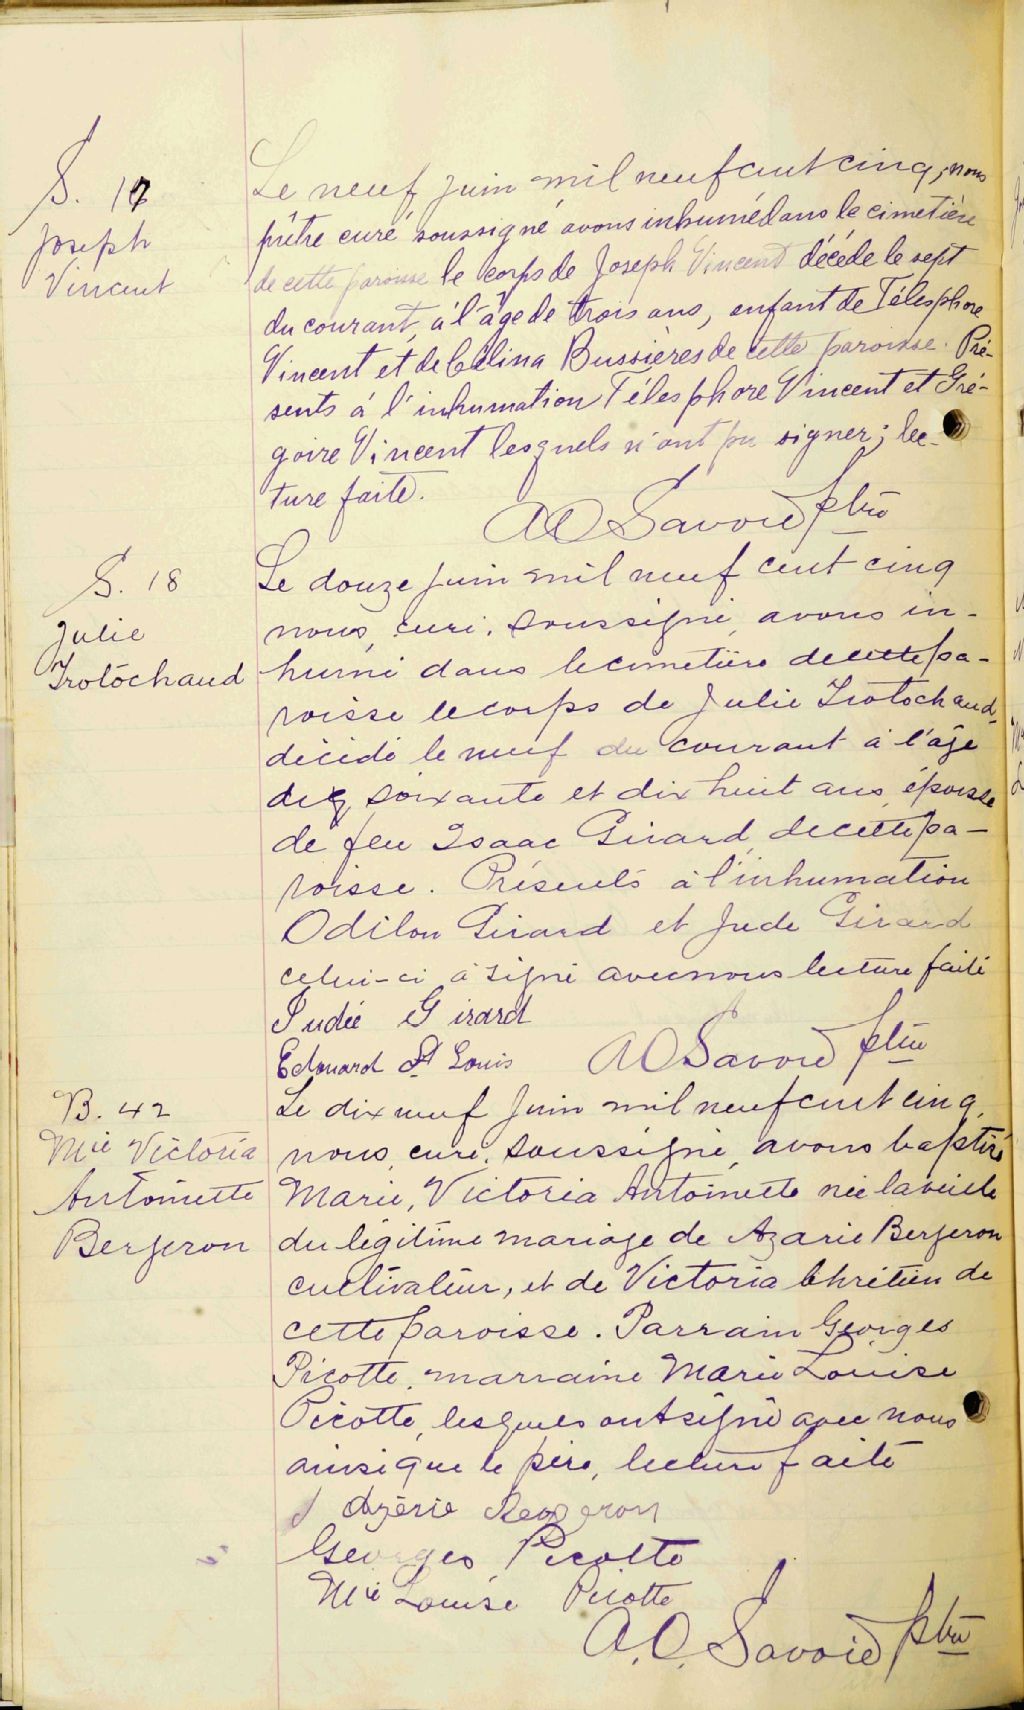 S. 17
Joseph
Vincent
Le neuf juin mil neuf cent cinq, nous
prêtre curé soussigné avons inhumé dans le cimetière
de cette paroisse le corps de Joseph Vincent décédé le sept
du courant, à l'âge de trois ans, enfant de Télesphore
Vincent et de Célina Bussières de cette paroisse. Pré-
sents à l'inhumation Télesphore Vincent et Gré-
goire Vincent lesquels n'ont pu signer; lec-
ture faite.
A O Savoie ptre
S. 18
Julie
Trotochaud
Le douze juin mil neuf cent cinq
nous, curé, soussigné, avons in-
humé dans le cimetière de cette pa-
roisse le corps de Julie Trotochaud,
décédé le neuf du courant à l'âge
de soixante et dix huit ans, épouse
de feu Isaac Girard, de cette pa-
roisse. Présents à l'inhumation
Odilon Girard et Jude Girard
celui-ci a signé avec nous lecture faite
Judée Girard
Edouard St Louis
A O Savoie ptre
B. 42
Mie Victoria
Antoinette
Bergeron
Le dix neuf juin mil neuf cent cinq,
nous, curé, soussigné, avons baptisé
Marie, Victoria Antoinette née la veille
du légitime mariage de Azarie Bergeron
cultivateur, et de Victoria Chrétien de
cette paroisse. Parrain Georges
Picotte, marraine Marie Louise
Picotte, lesquels ont signé avec nous
ainsi que le père, lecture faite
Azérie Bergeron
Georges Picotte
Mie Louise Picotte
A. O. Savoie ptre